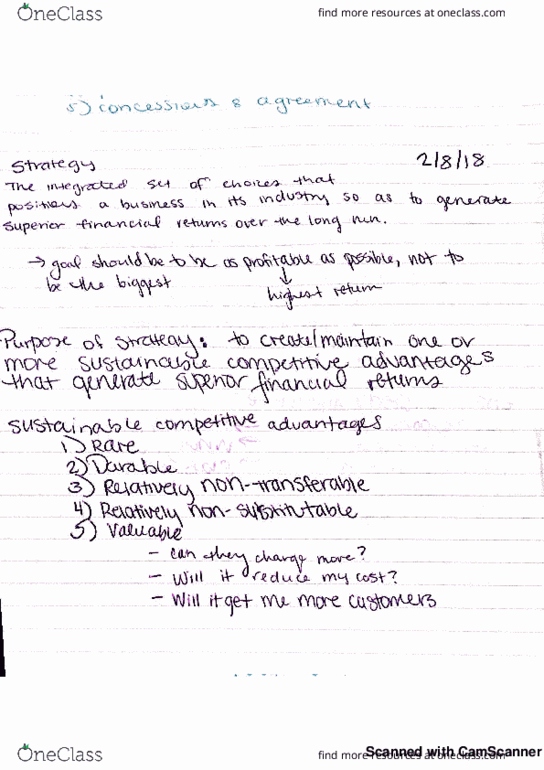 OneClass
find more resources at oneclass.com
5) concessions & agreement
2/8/18
Strategy
The integrated set of choices that
positions a business in its industry so as to generate
superior financial returns over the long run.
→ goal should be to be as profitable as possible, not to
be the biggest
↓
highest return
Purpose of Strategy: to create/maintain one or
more sustainable competitive advantages
that generate superior financial returns
Sustainable competitive advantages
1) Rare
2) Durable
3) Relatively non-transferable
4) Relatively non-substitutable
5) Valuable
- can they charge more?
- Will it reduce my cost?
- Will it get me more customers
OneClass
find more resources at oneclass.com
Scanned with CamScanner